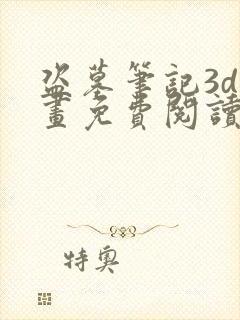 盗墓筆記3d
畫免費閱讀
特奧